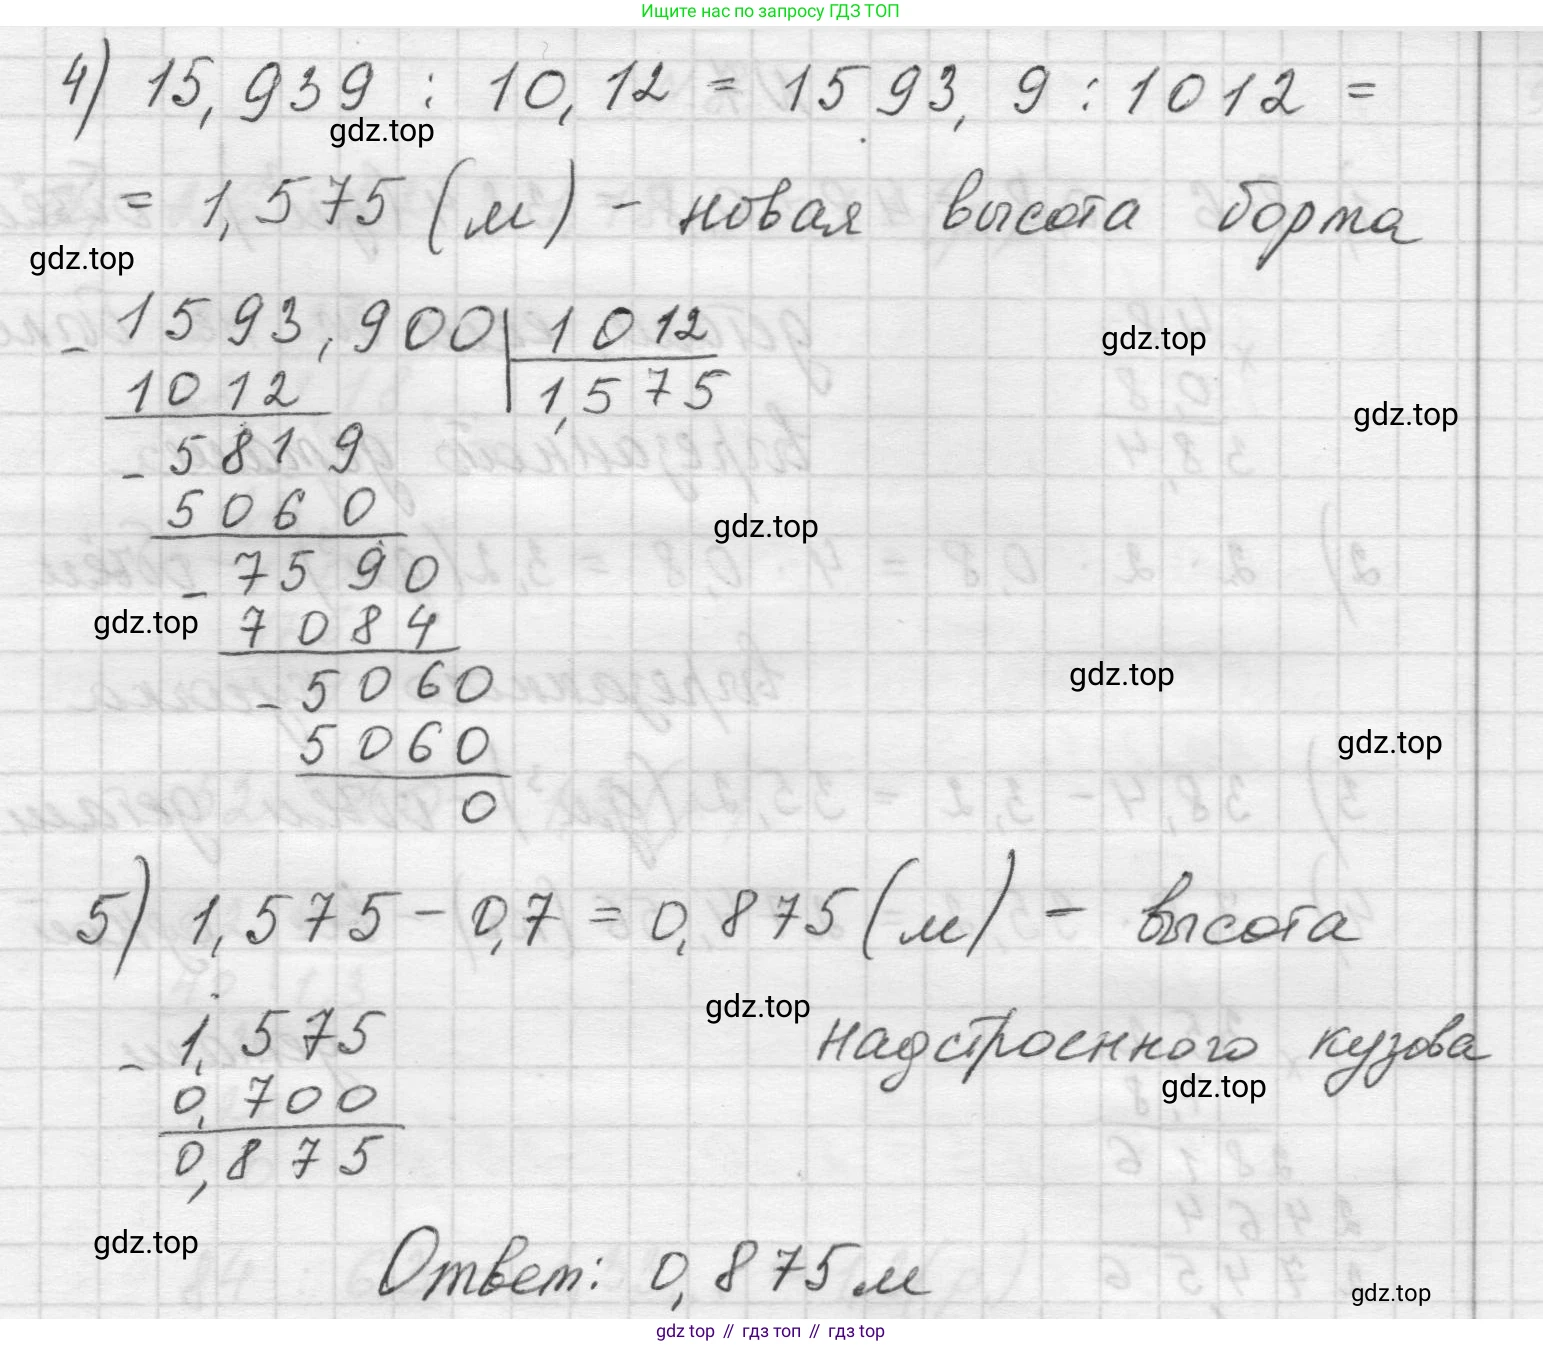 Ищите нас по запросу ГДЗ ТОП
4) 15,939 : 10,12 = 1593,9 : 1012 =
gdz.top
= 1,575 (м) - новая высота борта
gdz.top
- 1593,900 | 1012
gdz.top
1012 | 1,575
gdz.top
- 5819
5060
gdz.top
- 7590
gdz.top
7084
- 5060
gdz.top
5060
gdz.top
0
5) 1,575 - 0,7 = 0,875 (м) - высота
gdz.top
надстроенного кузова
- 1,575
gdz.top
0,700
0,875
gdz.top
Ответ: 0,875 м
gdz.top
gdz top // гдз топ // gdz top